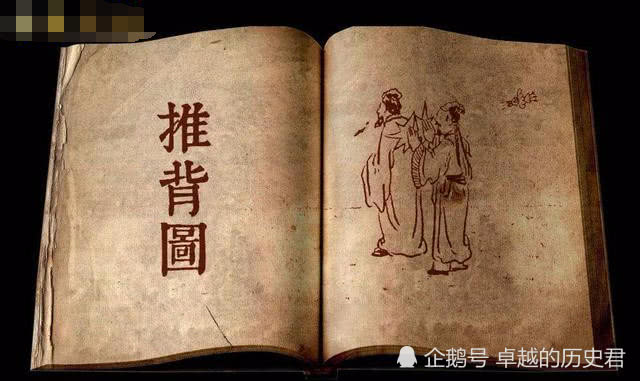 推背圖
企鹅号 卓越的历史君